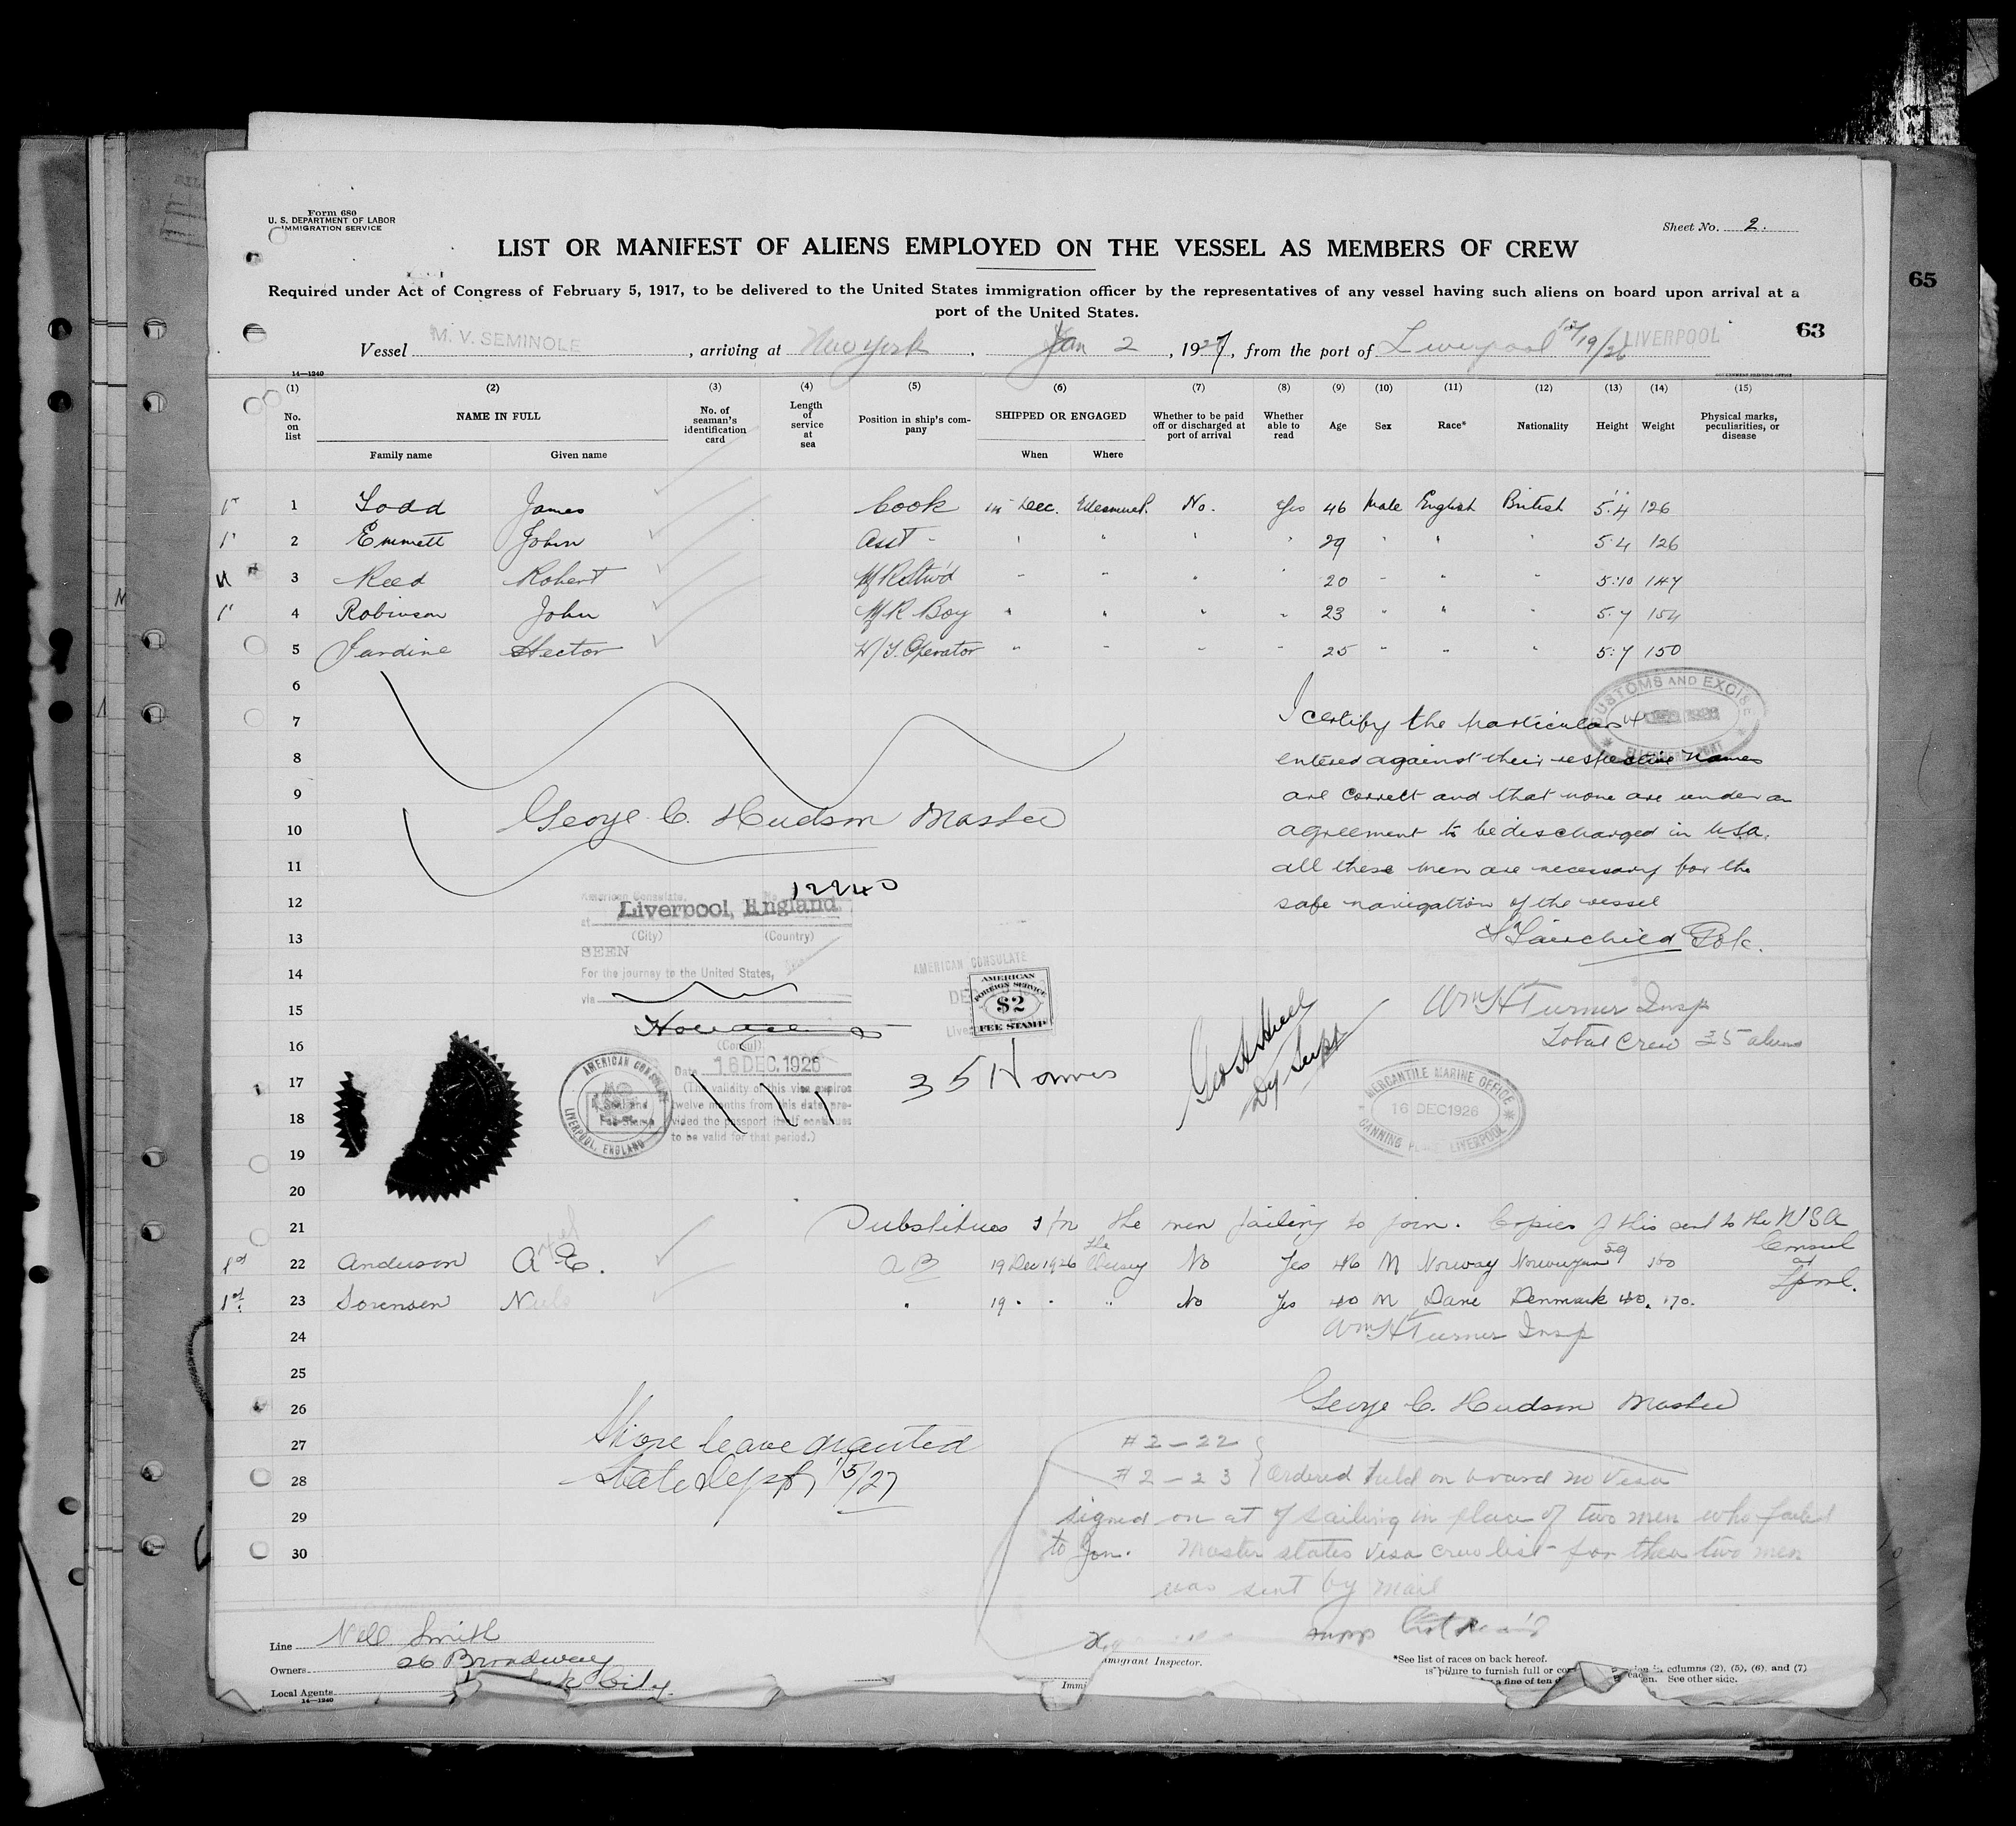 Form 680
U. S. DEPARTMENT OF LABOR
IMMIGRATION SERVICE
Sheet No. 2.
LIST OR MANIFEST OF ALIENS EMPLOYED ON THE VESSEL AS MEMBERS OF CREW
65
Required under Act of Congress of February 5, 1917, to be delivered to the United States immigration officer by the representatives of any vessel having such aliens on board upon arrival at a
port of the United States.
63
Vessel M. V. SEMINOLE, arriving at New York, Jan 2, 1927, from the port of Liverpool 12/19/26 LIVERPOOL
14—1240
(1) (2) (3) (4) (5) (6) (7) (8) (9) (10) (11) (12) (13) (14) (15)
No. on list NAME IN FULL No. of seaman's identification card Length of service at sea Position in ship's company SHIPPED OR ENGAGED Whether to be paid off or discharged at port of arrival Whether able to read Age Sex Race* Nationality Height Weight Physical marks, peculiarities, or disease
Family name Given name When Where
1 Todd James Cook in Dec. No. Yes 46 Male English British 5.4 126
2 Emmett John Asst - " " " " 29 " " " 5.4 126
3 Reed Robert M R Stw'd " " " " 20 " " " 5.10 147
4 Robinson John M R Boy " " " " 23 " " " 5.7 154
5 Jardine Hector W/T. Operator " " " " 25 " " " 5.7 150
6
7
8
9
10
11
12
13
14
15
16
17
18
19
20
CUSTOMS AND EXCISE
I certify the particulars
entered against their respective names
are correct and that none are under an
agreement to be discharged in U.S.A.
all these men are necessary for the
safe navigation of the vessel
George C. Hudson Master
12240
American Consulate,
at Liverpool, England
(City) (Country)
SEEN
For the journey to the United States,
via
(Consul)
Date 16 DEC. 1926
(The validity of this visa expires
twelve months from this date, pro-
vided the passport itself continues
to be valid for that period.)
AMERICAN CONSULATE
LIVERPOOL, ENGLAND
AMERICAN CONSULATE
DEC
AMERICAN
FOREIGN SERVICE
$2
FEE STAMP
35 Names
Wm H Turner Insp
Total Crew 35 aliens
MERCANTILE MARINE OFFICE
16 DEC 1926
CANNING PLACE LIVERPOOL
21 Substitues for the men failing to join. Copies of this sent to the USA
Consul
at
Lpool.
1st 22 Anderson A E. A B 19 Dec 1926 the Mersey No Yes 46 M Norway Norwegian 5 9 160
1st 23 Sorensen Niels " 19 " " " No Yes 40 M Dane Denmark 170.
24 Wm H Turner Insp
25
26 George C. Hudson Master
27 Shore leave granted
28 State Dept 1/5/27
29
30
# 2 - 22
# 2 - 23 } Ordered held on board no visa
signed on at of sailing in place of two men who failed
to join. Master states visa crew list for these two men
was sent by mail
Line Smith
Owners 26 Broadway
Local Agents City.
14—1240
Immigrant Inspector.
*See list of races on back hereof.
columns (2), (5), (6), and (7)
See other side.